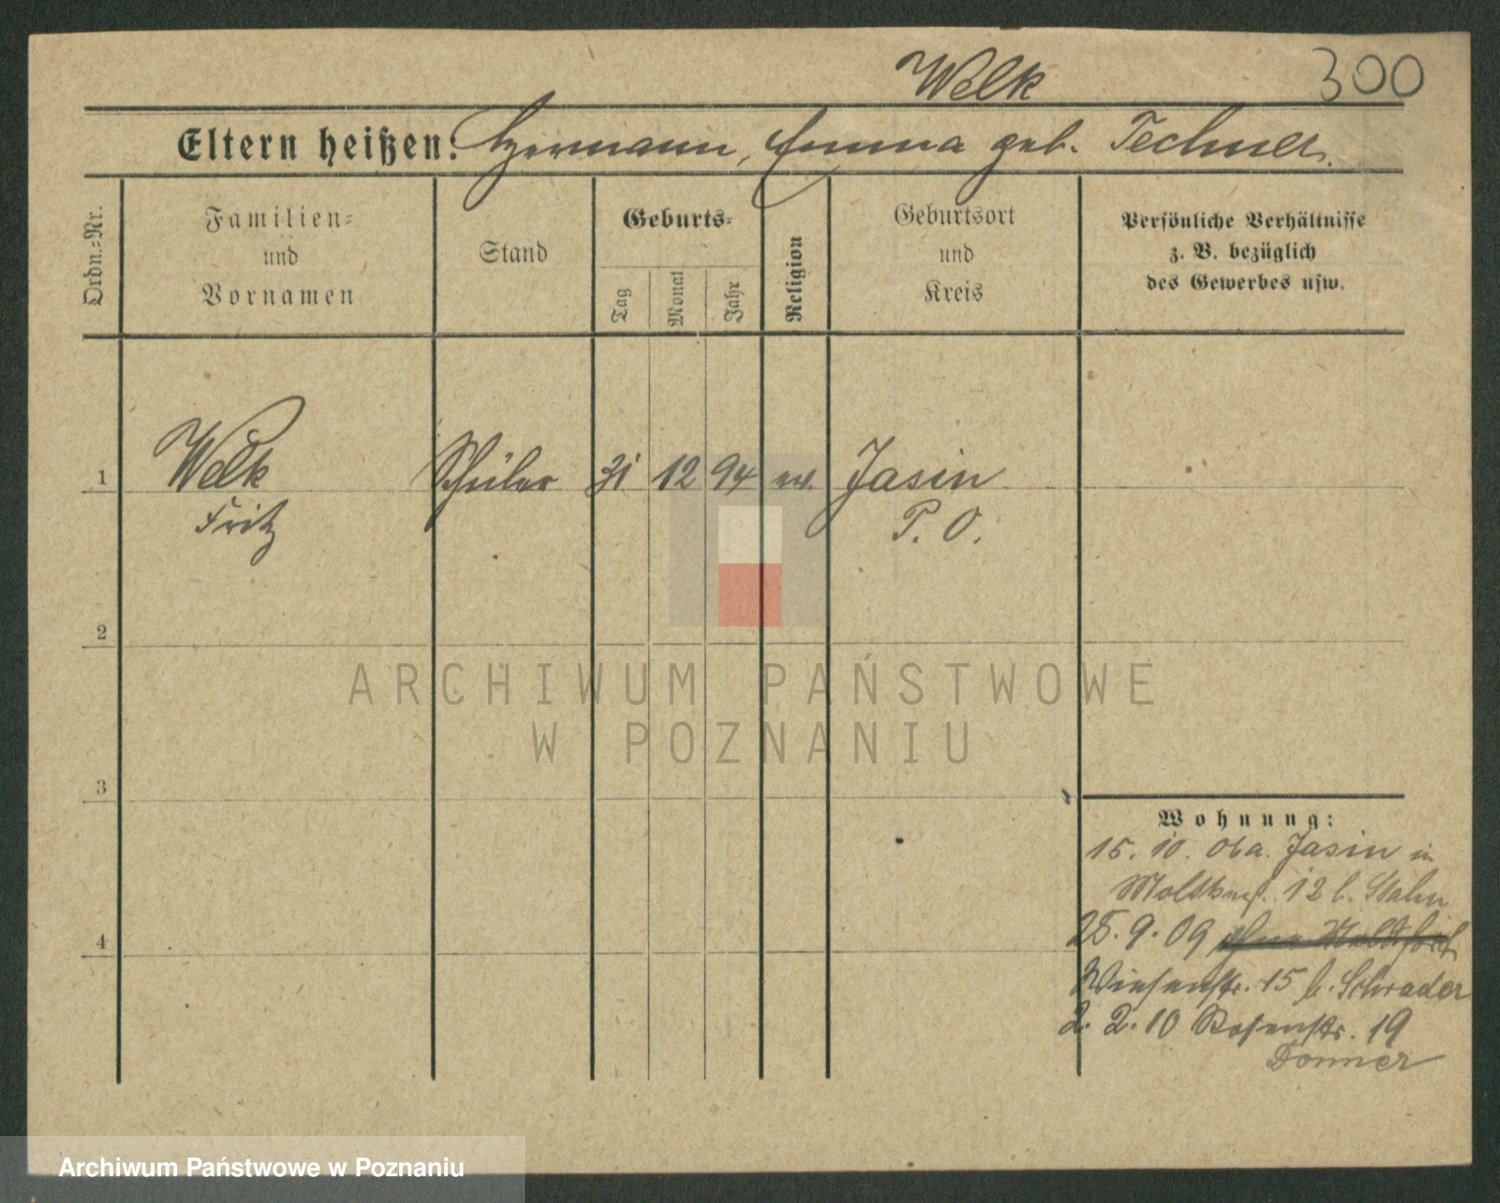 Welk 300
Eltern heißen: Hermann, Emma geb. Techner.
Ordn.=Nr.
Familien=
und
Vornamen
Stand
Geburts=
Tag
Monat
Jahr
Religion
Geburtsort
und
Kreis
Persönliche Verhältnisse
z. B. bezüglich
des Gewerbes usw.
1 Welk Schüler 31 12 94 ev. Jasin
Fritz P. O.
2
3
4
Wohnung:
15. 10. 06 a. Jasin in
12 b. Stahn
25. 9. 09
Wiesenstr. 15 b. Schrader
2. 2. 10 Rosenstr. 19
Donner
ARCHIWUM PAŃSTWOWE
W POZNANIU
Archiwum Państwowe w Poznaniu